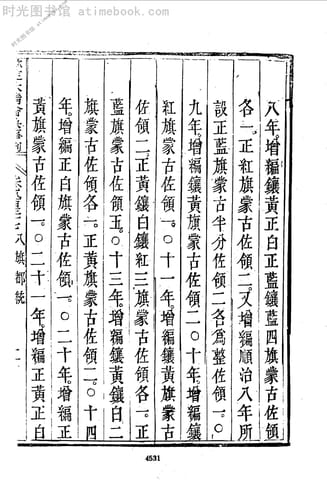 时光图书馆 atimebook.com
八年。增編鑲黃正白正藍鑲藍四旗蒙古佐領
各一。正紅旗蒙古佐領二。又增編順治八年所
設正藍旗蒙古半分佐領二各為整佐領一。〇
九年。增編鑲黃旗蒙古佐領二〇十年。增編鑲
紅旗蒙古佐領一。〇十一年。增編鑲黃旗蒙古
佐領二正黃鑲白鑲紅三旗蒙古佐領各一。正
藍旗蒙古佐領五。〇十三年。增編鑲黃鑲白二
旗蒙古佐領各一。正黃旗蒙古佐領二。〇十四
年。增編正白旗蒙古佐領一。〇二十年。增編正
黃旗蒙古佐領一。〇二十一年。增編正黃正白
八旗都統
二
4531
时光图书馆 atimebook.com